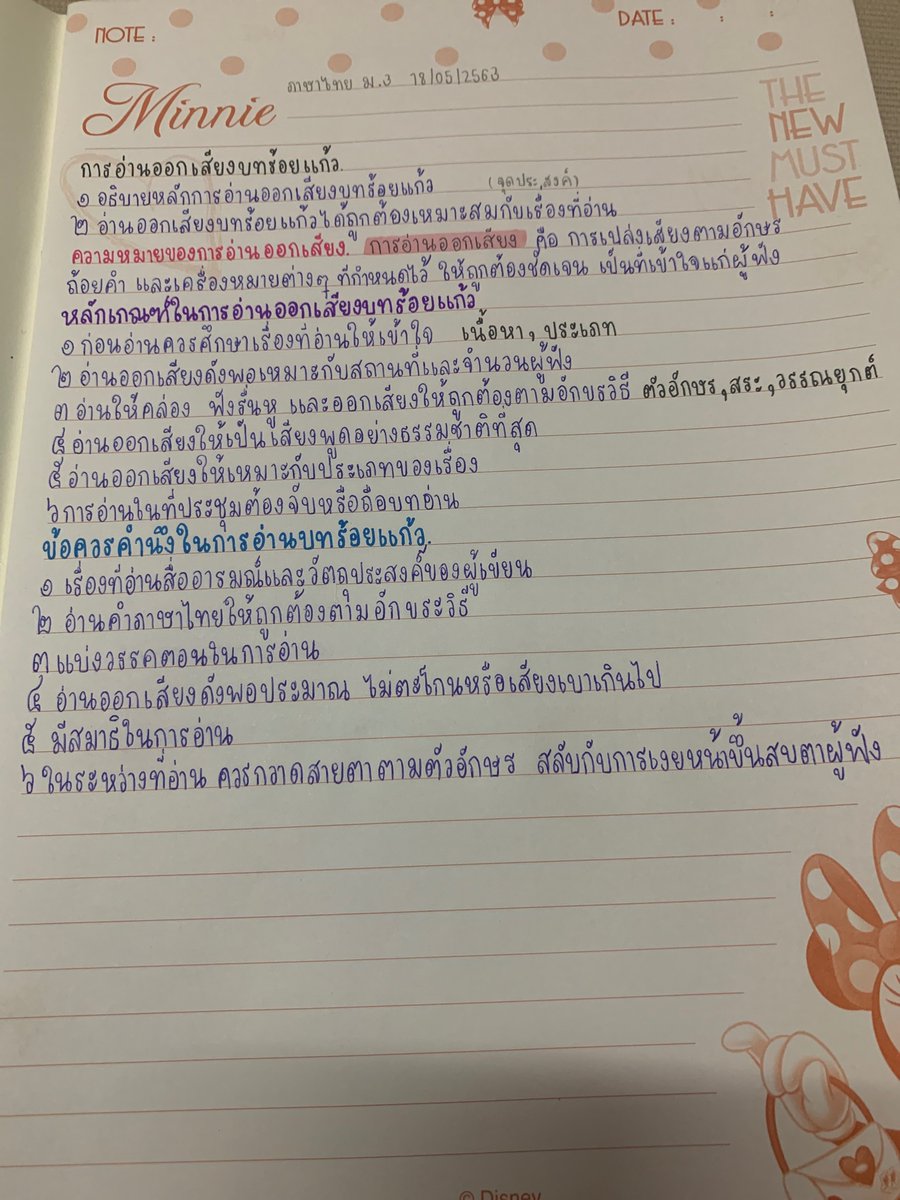 NOTE :
DATE : : :
Minnie
ภาษาไทย ม.3 18/05/2563
THE
NEW
MUST
HAVE
การอ่านออกเสียงบทร้อยแก้ว.
๑ อธิบายหลักการอ่านออกเสียงบทร้อยแก้ว (จุดประสงค์)
๒ อ่านออกเสียงบทร้อยแก้วได้ถูกต้องเหมาะสมกับเรื่องที่อ่าน
ความหมายของการอ่านออกเสียง. การอ่านออกเสียง คือ การเปล่งเสียงตามอักษร
ถ้อยคำ และเครื่องหมายต่างๆ ที่กำหนดไว้ ให้ถูกต้องชัดเจน เป็นที่เข้าใจแก่ผู้ฟัง
หลักเกณฑ์ในการอ่านออกเสียงบทร้อยแก้ว
๑ ก่อนอ่านควรศึกษาเรื่องที่อ่านให้เข้าใจ เนื้อหา, ประเภท
๒ อ่านออกเสียงดังพอเหมาะกับสถานที่และจำนวนผู้ฟัง
๓ อ่านให้คล่อง ฟังรื่นหู และออกเสียงให้ถูกต้องตามอักขรวิธี ตัวอักษร, สระ, วรรณยุกต์
๔ อ่านออกเสียงให้เป็นเสียงพูดอย่างธรรมชาติที่สุด
๕ อ่านออกเสียงให้เหมาะกับประเภทของเรื่อง
๖ การอ่านในที่ประชุมต้องจับหรือถือบทอ่าน
ข้อควรคำนึงในการอ่านบทร้อยแก้ว.
๑ เรื่องที่อ่านสื่ออารมณ์และวัตถุประสงค์ของผู้เขียน
๒ อ่านคำภาษาไทยให้ถูกต้องตามอักขระวิธี
๓ แบ่งวรรคตอนในการอ่าน
๔ อ่านออกเสียงดังพอประมาณ ไม่ตะโกนหรือเสียงเบาเกินไป
๕ มีสมาธิในการอ่าน
๖ ในระหว่างที่อ่าน ควรกวาดสายตาตามตัวอักษร สลับกับการเงยหน้าขึ้นสบตาผู้ฟัง
© Disney